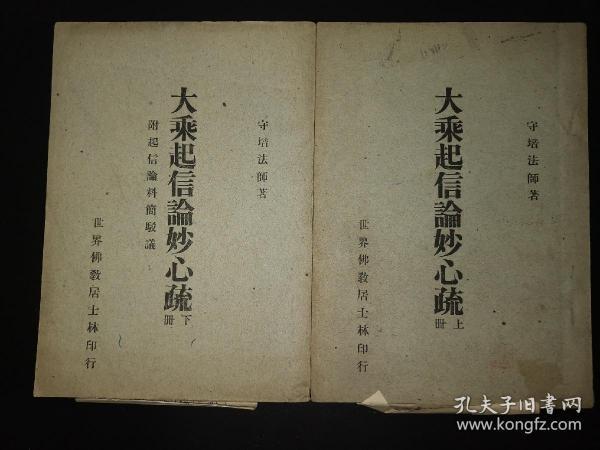 守培法師著
大乘起信論妙心疏上冊
世界佛教居士林印行
守培法師著
大乘起信論妙心疏下冊
附起信論料簡駁議
世界佛敎居士林印行
孔夫子旧书网
www.kongfz.com